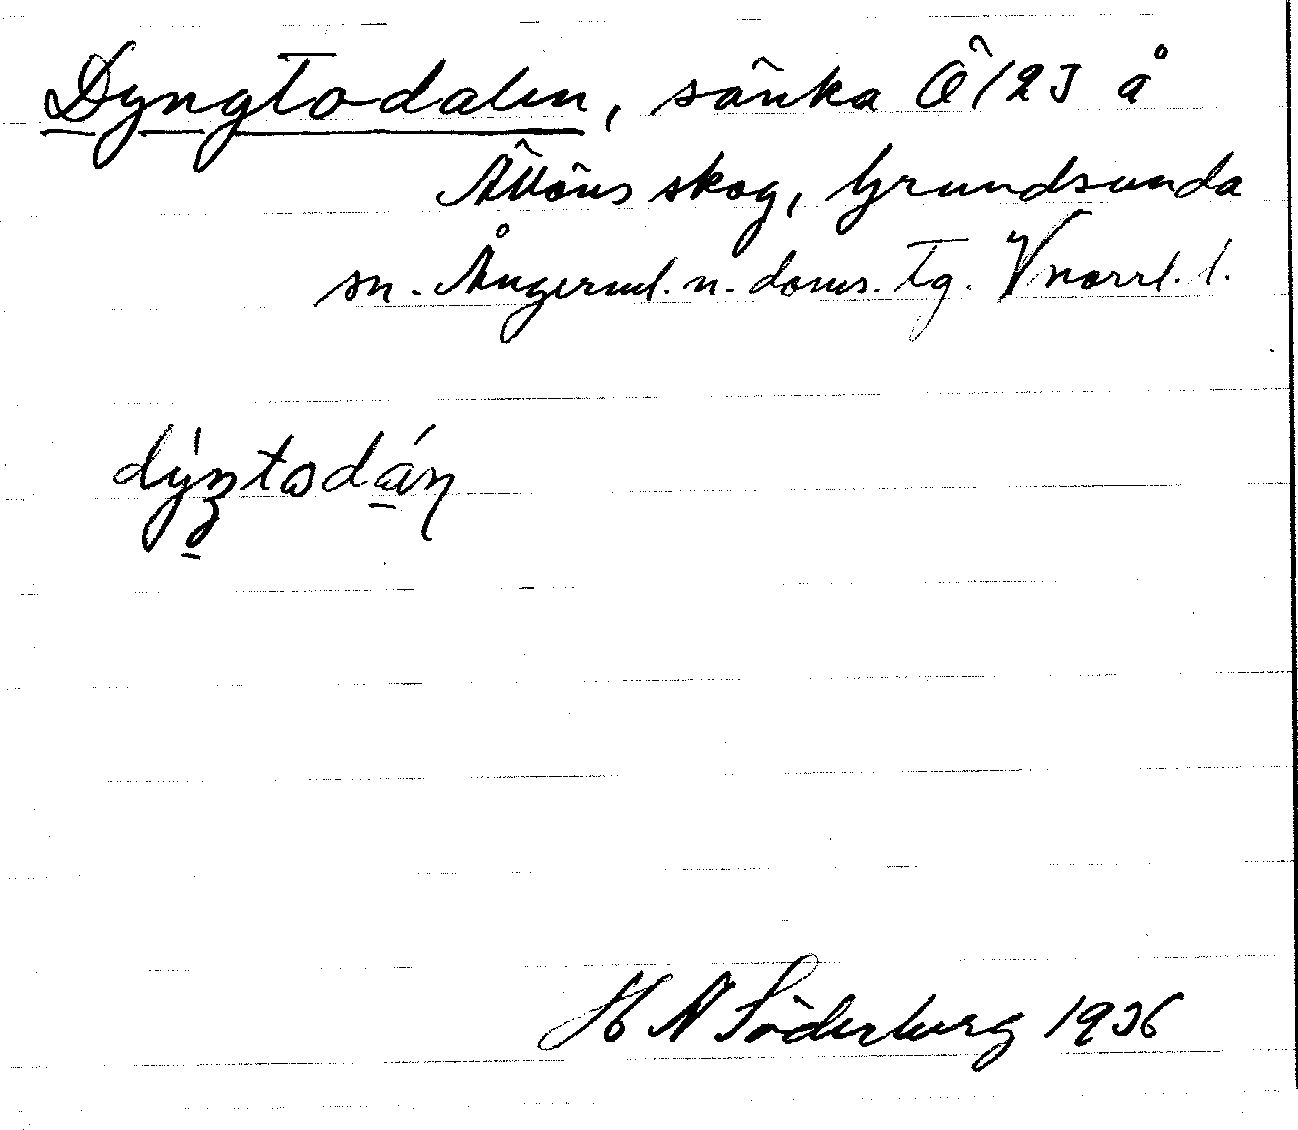 Dyngtodalen, sänka Ö 123 å
skog, Grundsunda
sn. Ångerml. n. doms. tg. Vnorrl. l.
H A Söderberg 1936